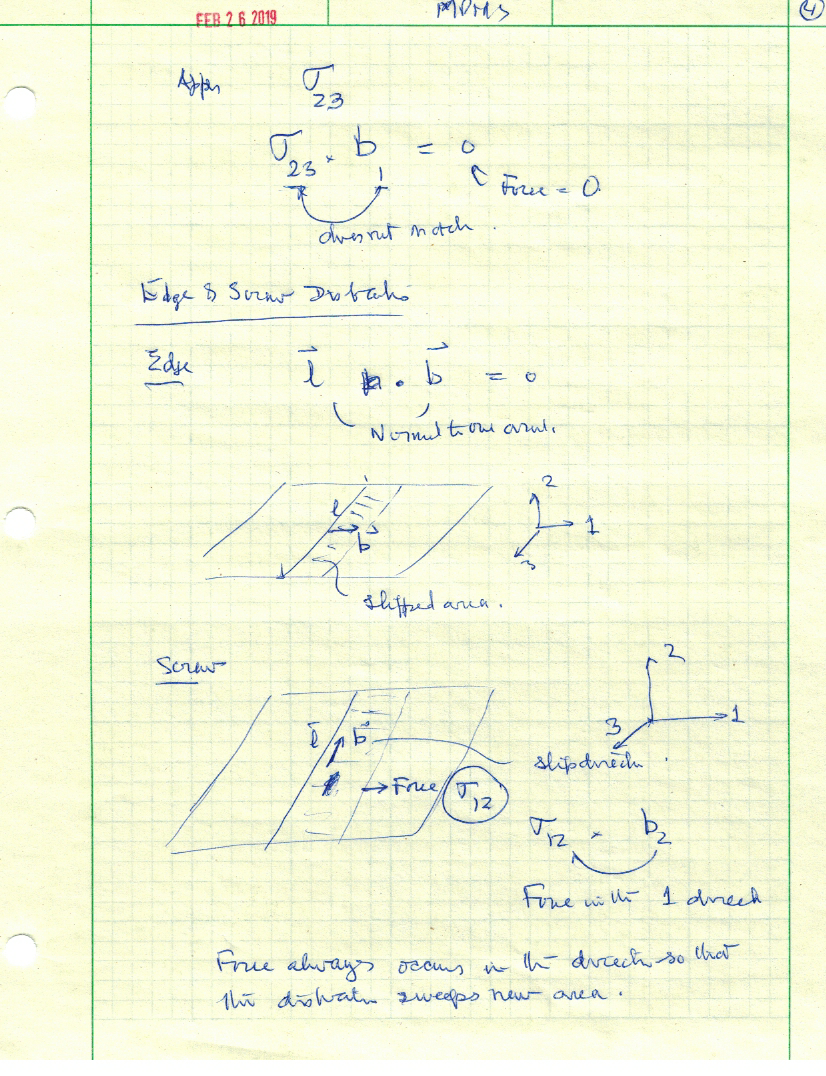 FEB 2 6 2019
4
Apply σ23
σ23 × b1 = 0
Force = 0.
does not match.
Edge & Screw Dislocations
Edge l⃗ · b⃗ = 0
Normal to one another.
l b⃗
2
1
3
slipped area.
Screw
2
1
3
l b⃗
slip direction.
→ Force σ12
σ12 × b2
Force in the 1 direct
Force always occurs in the direction so that
the dislocation sweeps new area.